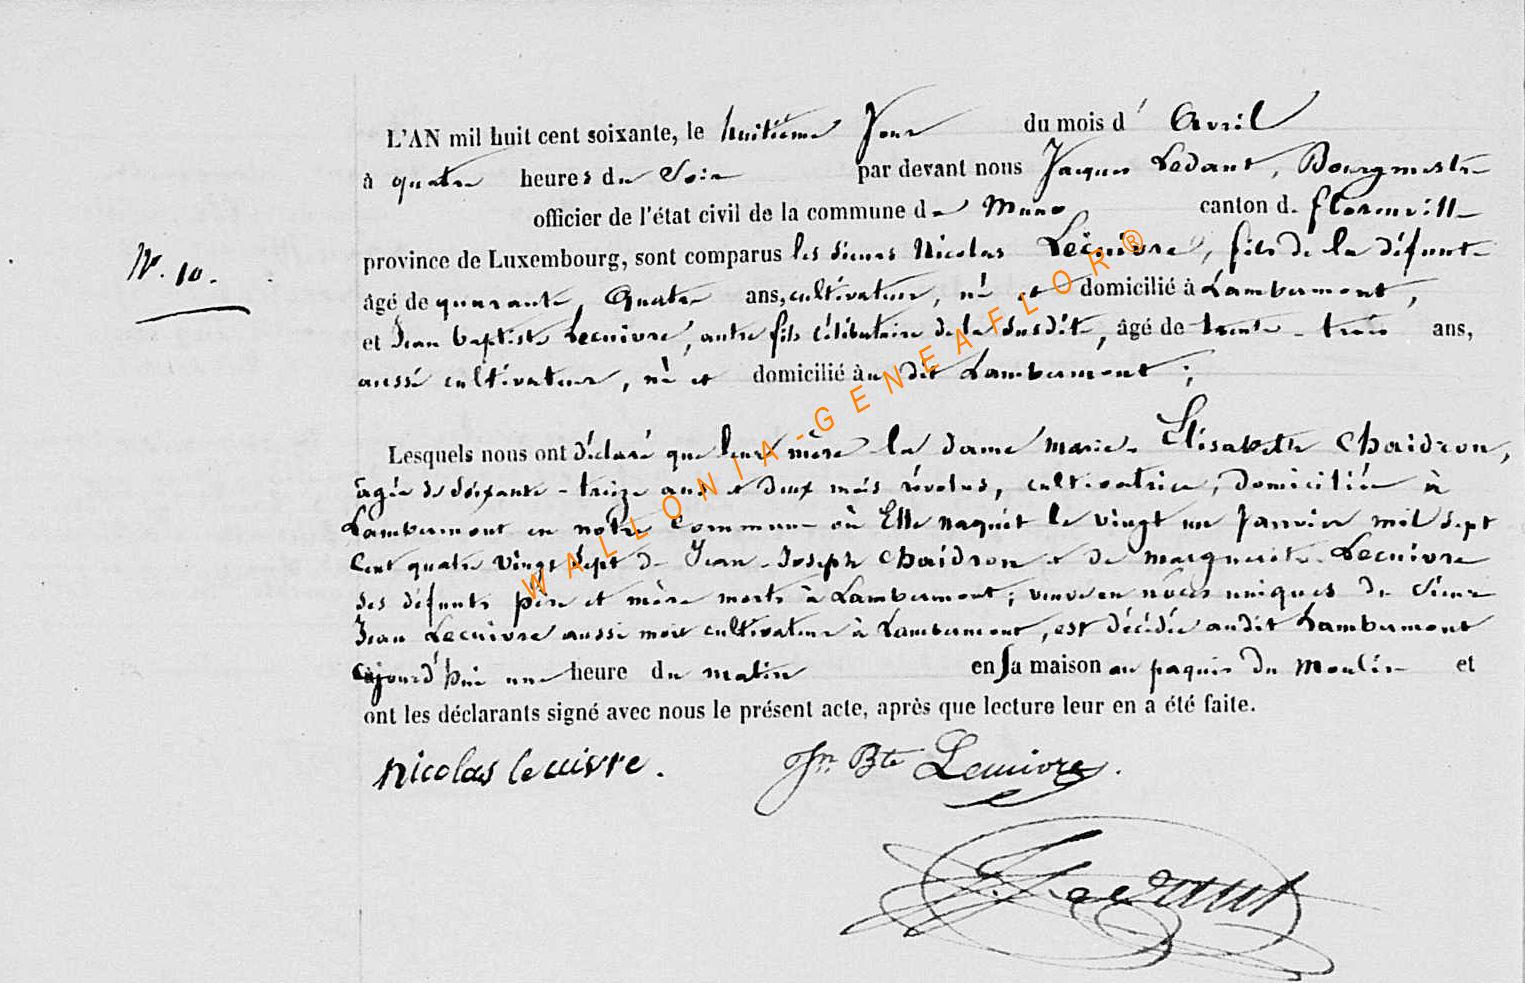 L'AN mil huit cent soixante, le huitième Jour du mois d' Avril
à quatre heures du Soir par devant nous Jacques Ledant, Bourgmestre
officier de l'état civil de la commune de Muno canton de florenville
N°. 10.
province de Luxembourg, sont comparus les sieurs Nicolas Lecuivre, fils de la défunte
âgé de quarante, quatre ans, cultivateur, né et domicilié à Lambermont,
et Jean baptiste Lecuivre, autre fils célibataire de la susdite, âgé de trente-trois ans,
aussi cultivateur, né et domicilié au dit Lambermont;
Lesquels nous ont déclaré que leur mère la dame Marie-Elisabeth Chaidron,
agée de Soixante-treize ans et deux mois révolus, cultivatrice, domiciliée à
Lambermont en notre Commune où Elle naquit le vingt un Janvier mil sept
Cent quatre vingt sept de Jean-Joseph Chaidron et de marguerite Lecuivre
ses défunts père et mère morts à Lambermont; veuve en noces uniques du Sieur
Jean Lecuivre aussi mort cultivateur à Lambermont, est décédée audit Lambermont
cejourd'hui une heure du matin en Sa maison au paquis du Moulin et
ont les déclarants signé avec nous le présent acte, après que lecture leur en a été faite.
nicolas lecuivre.
Jn Bte Lecuivre.
J. Ledant
WALLONIA-GENEAFLOR®